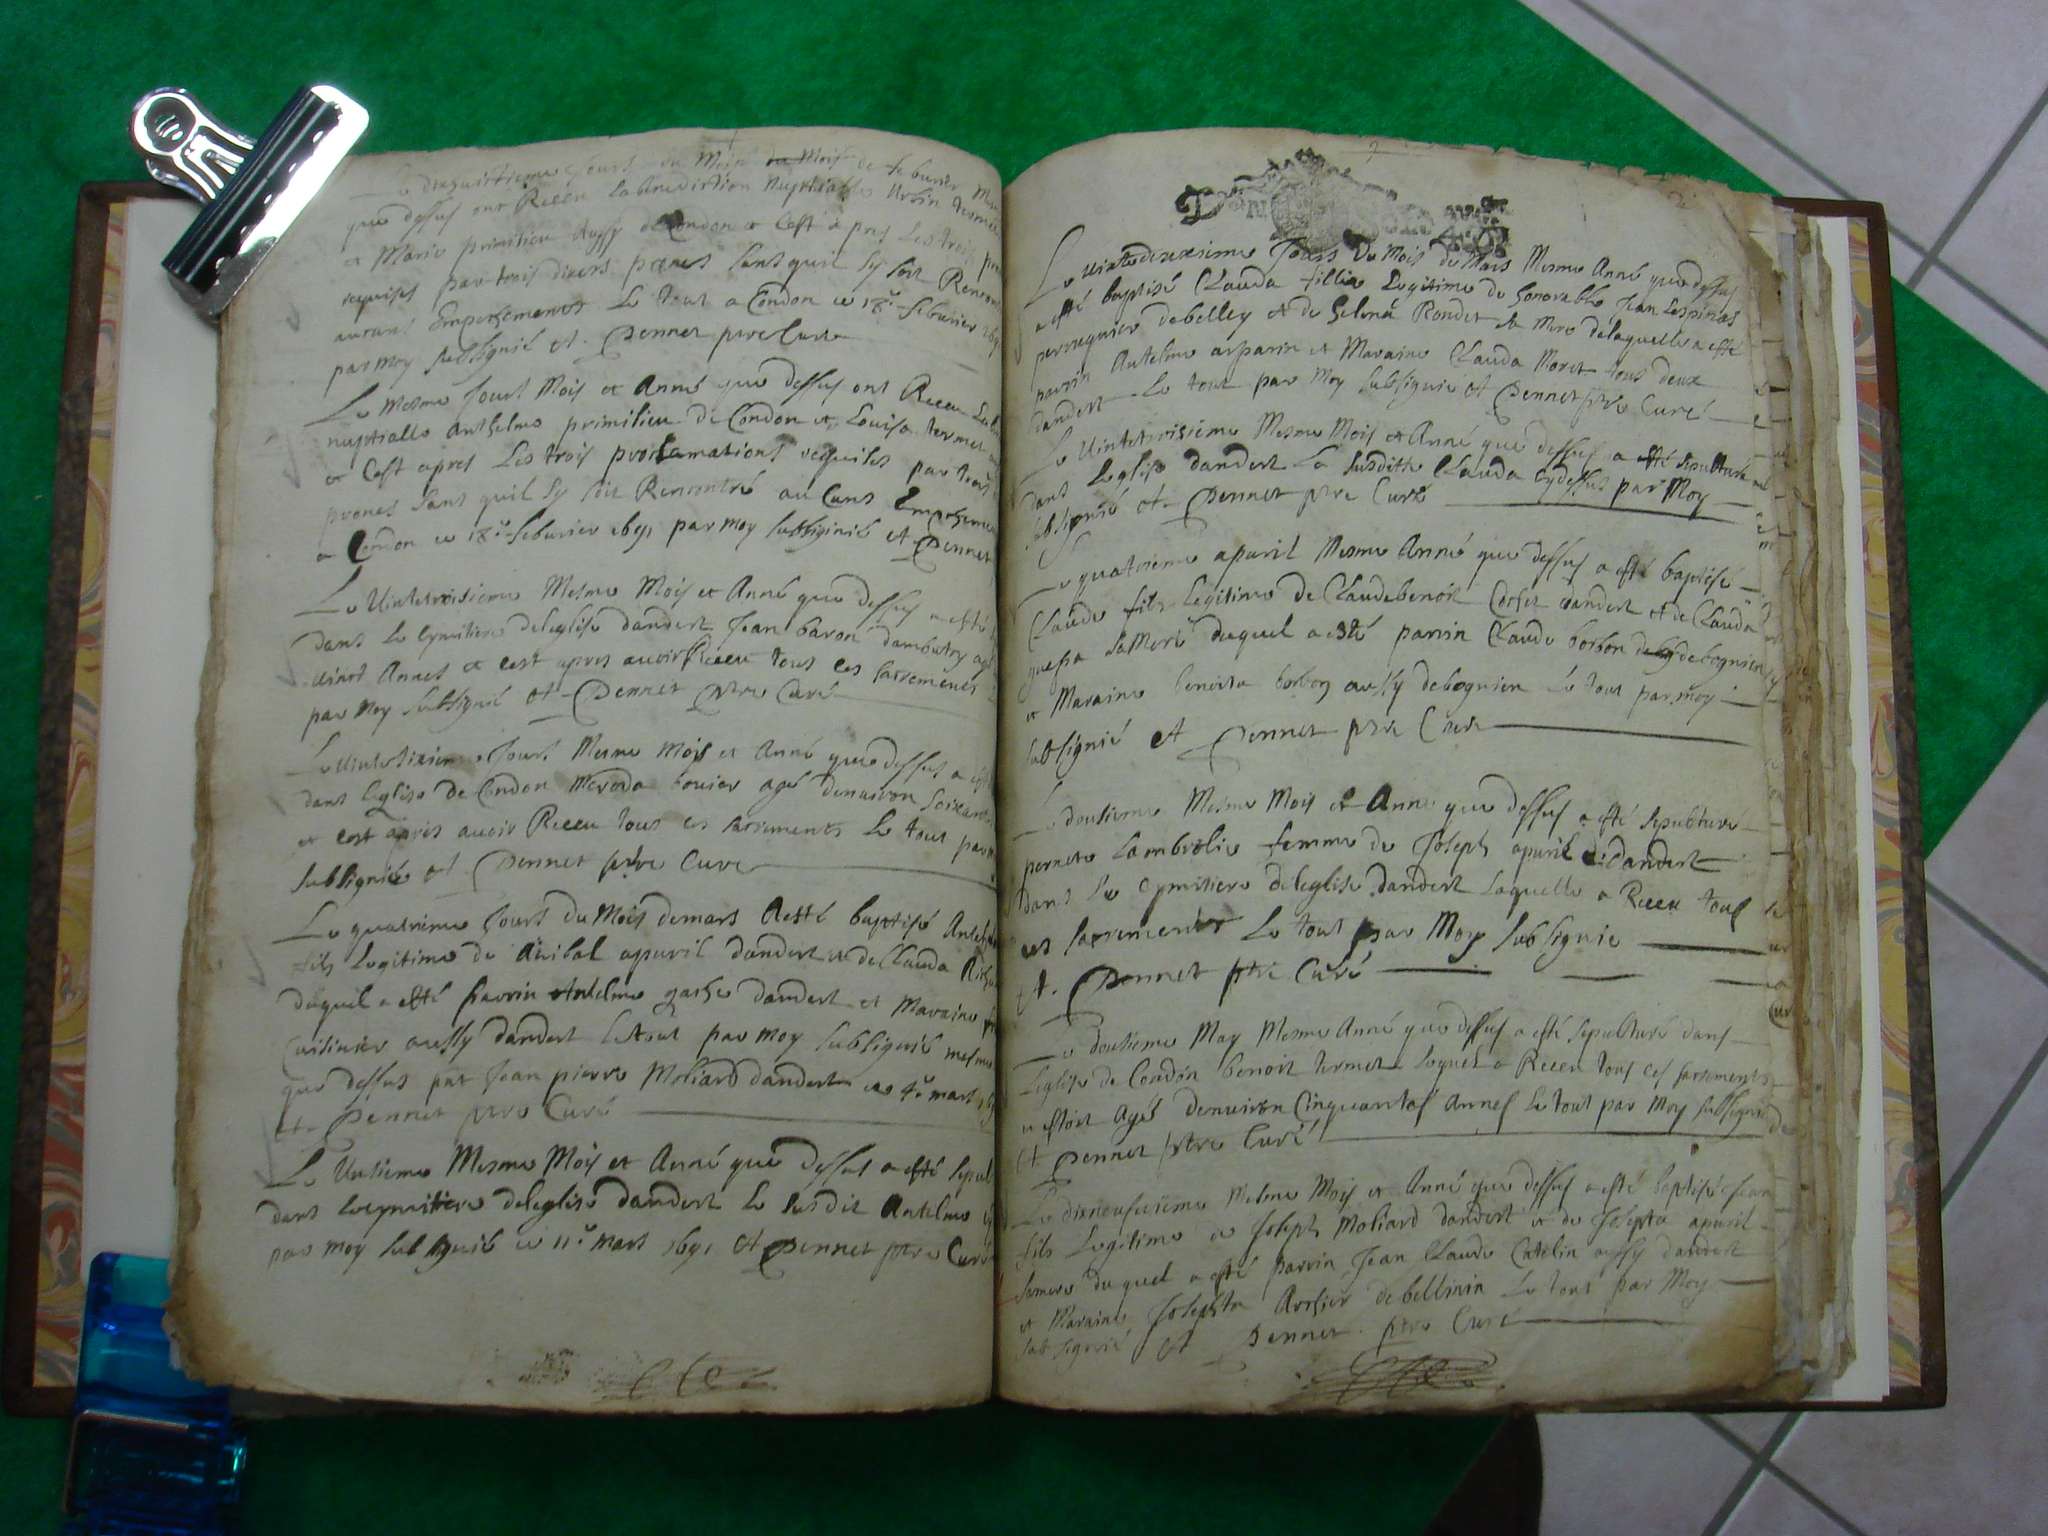 Le dixhuictieme Jours du Mois du Mois de feburier
que dessus ont Receu la Benediction Nuptialles Urbin termet
et Marie primilieu Aussy de Condon et Cest apres Les trois
requises par trois divers prones sans quil sy soit Rencontré
aucuns Empechements Le tout a Condon ce 18e feburier 169
par moy subsignié et Pennet ptre Curé
Le Mesme Jours Mois et Anné que dessus ont Receu La
nuptialle Anthelme primilieu de Condon et Louisa termet
et Cest apres Les trois proclamations requises par trois
prones sans quil sy soit Rencontré au Cuns Empecheme
a Condon ce 18e feburier 1691 par moy subsignié et Pennet
Le Vintetroisieme Mesme Mois et Anné que dessus a esté
dans Le Cymitiere de leglise dandert Jean baron dambutry agé
vint Annes et cest apres avoir Receu tous ces sacrements
par Moy subsignié et Pennet Ptre Curé
Le Vintesixieme Jours Mesme Mois et Anné que dessus a esté
dans Eglise de Condon bovier agé denviron Soixante
et cest apres avoir Receu tous ces sacrements Le tout par
subsignié et Pennet ptre Curé
Le quatrieme Jours du Mois de mars A esté baptisé Antelme
fils Legitime de Anibal apuril dandert et de Clauda
duquel a esté parrin Antelme gache dandert et Maraine
Cuisinier aussy dandert le tout par moy subsignié mesme
que dessus par Jean pierre Moliard dandert ce 4e mars
et Pennet ptre Curé
Le Unsieme Mesme Mois et Anné que dessus a esté sepul
dans le cymitiere de leglise dandert Le susdit Antelme
par moy subsignié ce 11e mars 1691 et Pennet ptre Curé
2
Le vintedeuxieme Jours du Mois de Mars Mesme Anné que dessus
a esté baptisé Clauda fillie Legitime de honorable Jean Lespinas
perruquier debelley et de helena Rondet sa Mere delaquelle a esté
parrin Antelme arparin et Maraine Clauda Moret tous deux
dandert Le tout par Moy subsignié et Pennet ptre Curé
Le Vintetroisieme Mesme Mois et Anné que dessus a esté sepulturé
dans Leglise dandert La susditte Clauda cydessus par Moy
subsignié et Pennet ptre Curé
Le quatrieme apuril Mesme Anné que dessus a esté baptisé
Claude fils Legitime de Claudebenoit Cochet dandert et de Clauda
sa Mere duquel a esté parrin Claude borbon debognien
et Maraine benoita borbon aussy debognien Le tout par moy
subsignié et Pennet ptre Curé
Le dousieme Mesme Mois et Anné que dessus a esté sepulturé
pernete Lambrolie femme de Joseph apuril dandert
dans Le cymitiere de leglise dandert laquelle a Receu tous
ces sacrements Le tout par Moy subsignié
et Pennet ptre Curé
Le dousieme May Mesme Anné que dessus a esté sepulturé dans
Leglise de Condon benoit termet Lequel a Receu tous ces sacrements
et estoit Agés denviron Cinquantes Annes Le tout par Moy subsignié
et Pennet ptre Curé
Le dixneufvieme Mesme Mois et Anné que dessus a esté baptisé Jean
fils Legitime de Joseph Moliard dandert et de Josepta apuril
samere duquel a esté parrin Jean Claude Catelin aussy dandert
et Maraine Josephta debellinin Le tout par Moy
subsignié et Pennet ptre Curé